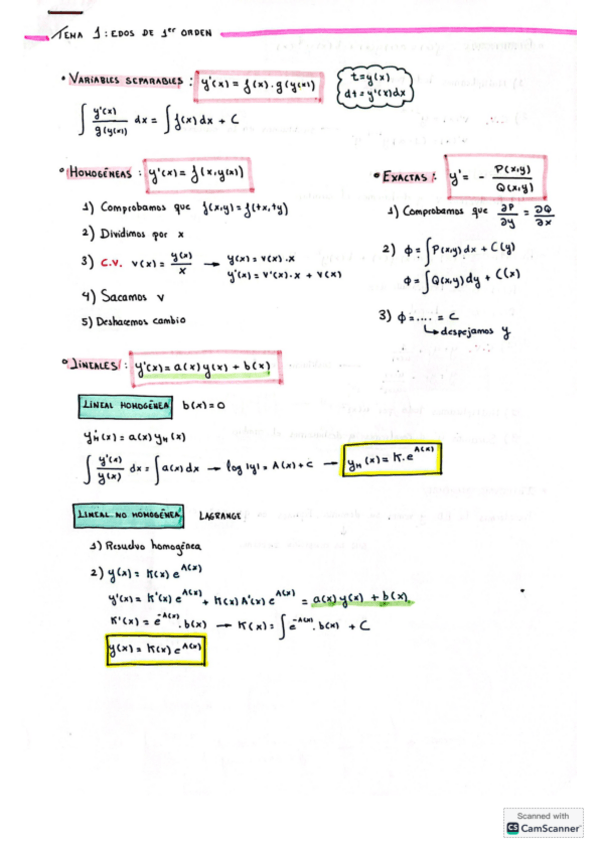 TEMA 1: EDOS DE 1er ORDEN
• VARIABLES SEPARABLES: y'(x) = f(x).g(y(x))
t=y(x)
dt=y'(x)dx
∫ y'(x)/g(y(x)) dx = ∫ f(x)dx + C
• HOMOGÉNEAS: y'(x) = f(x,y(x))
1) Comprobamos que f(x,y) = f(tx,ty)
2) Dividimos por x
3) C.V. v(x) = y(x)/x → y(x) = v(x).x
y'(x) = v'(x).x + v(x)
4) Sacamos v
5) Deshacemos cambio
• EXACTAS: y' = - P(x,y)/Q(x,y)
1) Comprobamos que ∂P/∂y = ∂Q/∂x
2) ϕ = ∫P(x,y)dx + C(y)
ϕ = ∫Q(x,y)dy + C(x)
3) ϕ = .... = C
↳ despejamos y
• LINEALES: y'(x) = a(x)y(x) + b(x)
LINEAL HOMOGÉNEA b(x)=0
y'H(x) = a(x) yH(x)
∫ y'(x)/y(x) dx = ∫ a(x)dx → log|y| = A(x)+C → yH(x) = K.e^A(x)
LINEAL NO HOMOGÉNEA LAGRANGE
1) Resuelvo homogénea
2) y(x) = K(x) e^A(x)
y'(x) = K'(x) e^A(x) + K(x) A'(x) e^A(x) = a(x) y(x) + b(x).
K'(x) = e^-A(x).b(x) → K(x) = ∫ e^-A(x).b(x) + C
y(x) = K(x) e^A(x)
Scanned with
CS CamScanner